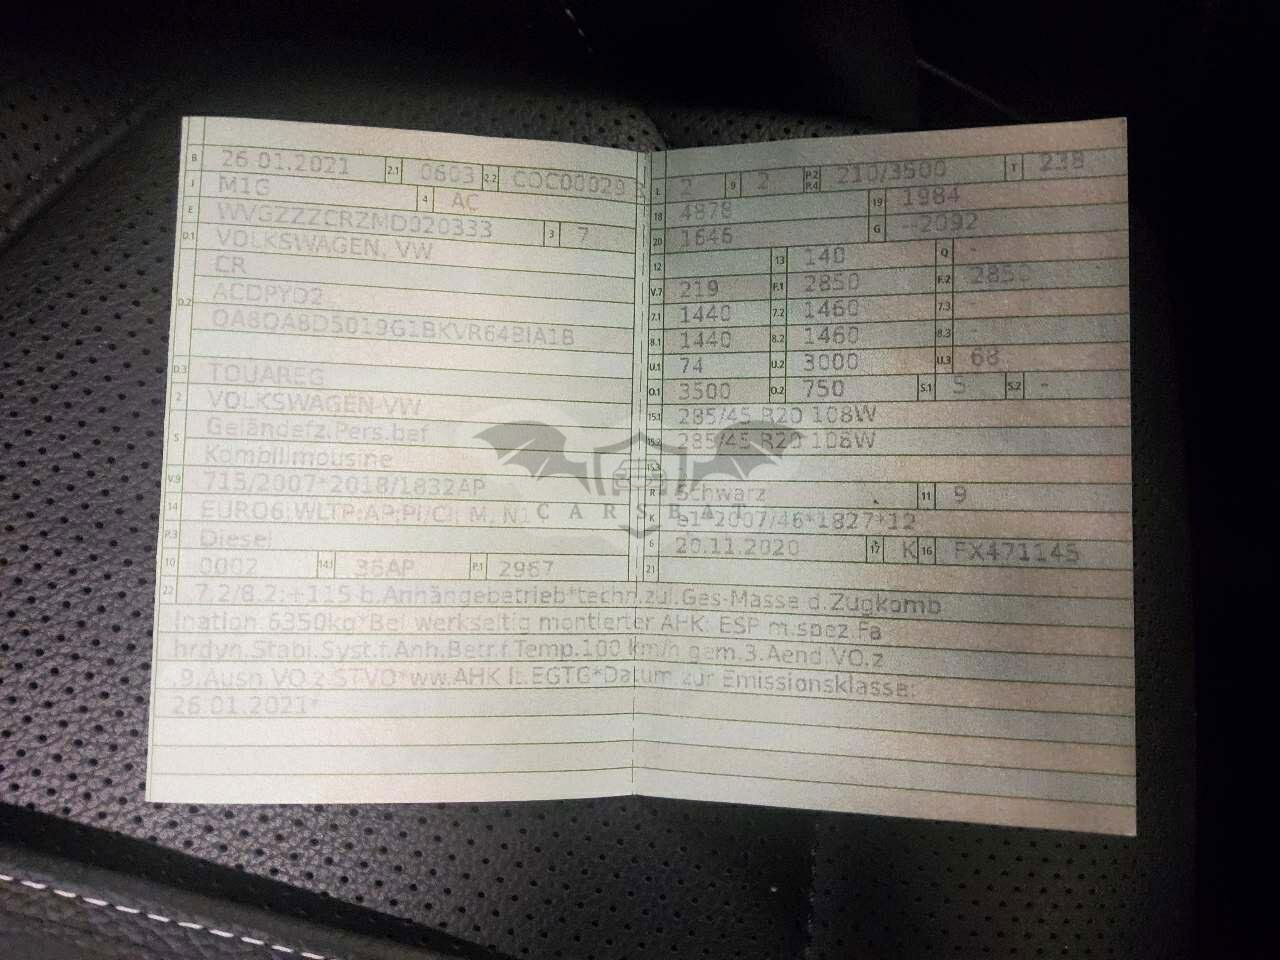 B 26.01.2021 2.1 0603 2.2 COC00029
J M1G 4 AC
E WVGZZZCRZMD020333 3 7
D.1 VOLKSWAGEN, VW
D.2 CR
ACDPYD2
QA8QA8D5019G1BKVR64BIA1B
D.3 TOUAREG
2 VOLKSWAGEN-VW
5 Geländefz.Pers.bef
Kombilimousine
V.9 715/2007*2018/1832AP
14 EURO6;WLTP;AP;PI/CI; M, N1
P.3 Diesel
10 0002 14.1 36AP P.1 2967
L 2 9 2 P.2 P.4 210/3500 T 238
18 4878 19 1984
20 1646 G --2092
12 13 140 Q -
V.7 219 F.1 2850 F.2 2850
7.1 1440 7.2 1460 7.3 -
8.1 1440 8.2 1460 8.3 -
U.1 74 U.2 3000 U.3 68
O.1 3500 O.2 750 S.1 5 S.2 -
15.1 285/45 R20 108W
15.2 285/45 R20 108W
15.3
R Schwarz 11 9
K e1*2007/46*1827*12
6 20.11.2020 17 K 16 FX471145
21
22 7.2/8.2:+115 b.Anhängebetrieb*techn.zul.Ges-Masse d.Zugkomb
ination 6350kg*Bei werkseitig montierter AHK: ESP m.spez.Fa
hrdyn.Stabi.Syst.f.Anh.Betr.f.Temp.100 km/h gem.3.Aend.VO.z
.9.Ausn.VO.z.STVO*ww.AHK lt.EGTG*Datum zur Emissionsklasse:
26.01.2021*
CARSBAT